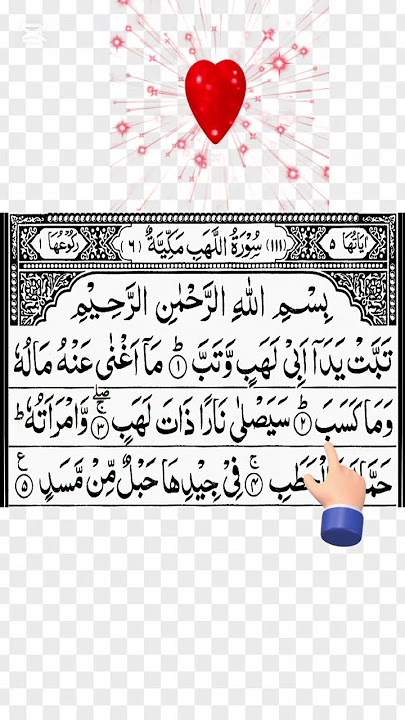 اٰیَاتُهَا ٥ (١١١) سُوْرَةُ اللَّهَبِ مَكِّیَّةٌ (٦) رُكُوْعُهَا ١
بِسْمِ اللهِ الرَّحْمٰنِ الرَّحِیْمِ
تَبَّتْ یَدَاۤ اَبِیْ لَهَبٍ وَّتَبَّ ؕ﴿١﴾ مَاۤ اَغْنٰی عَنْهُ مَالُهٗ
وَمَا كَسَبَ ؕ﴿٢﴾ سَیَصْلٰی نَارًا ذَاتَ لَهَبٍ ﴿٣﴾ۚۖ وَّامْرَاَتُهٗ ؕ
فِیْ جِیْدِهَا حَبْلٌ مِّنْ مَّسَدٍ ﴿٥﴾